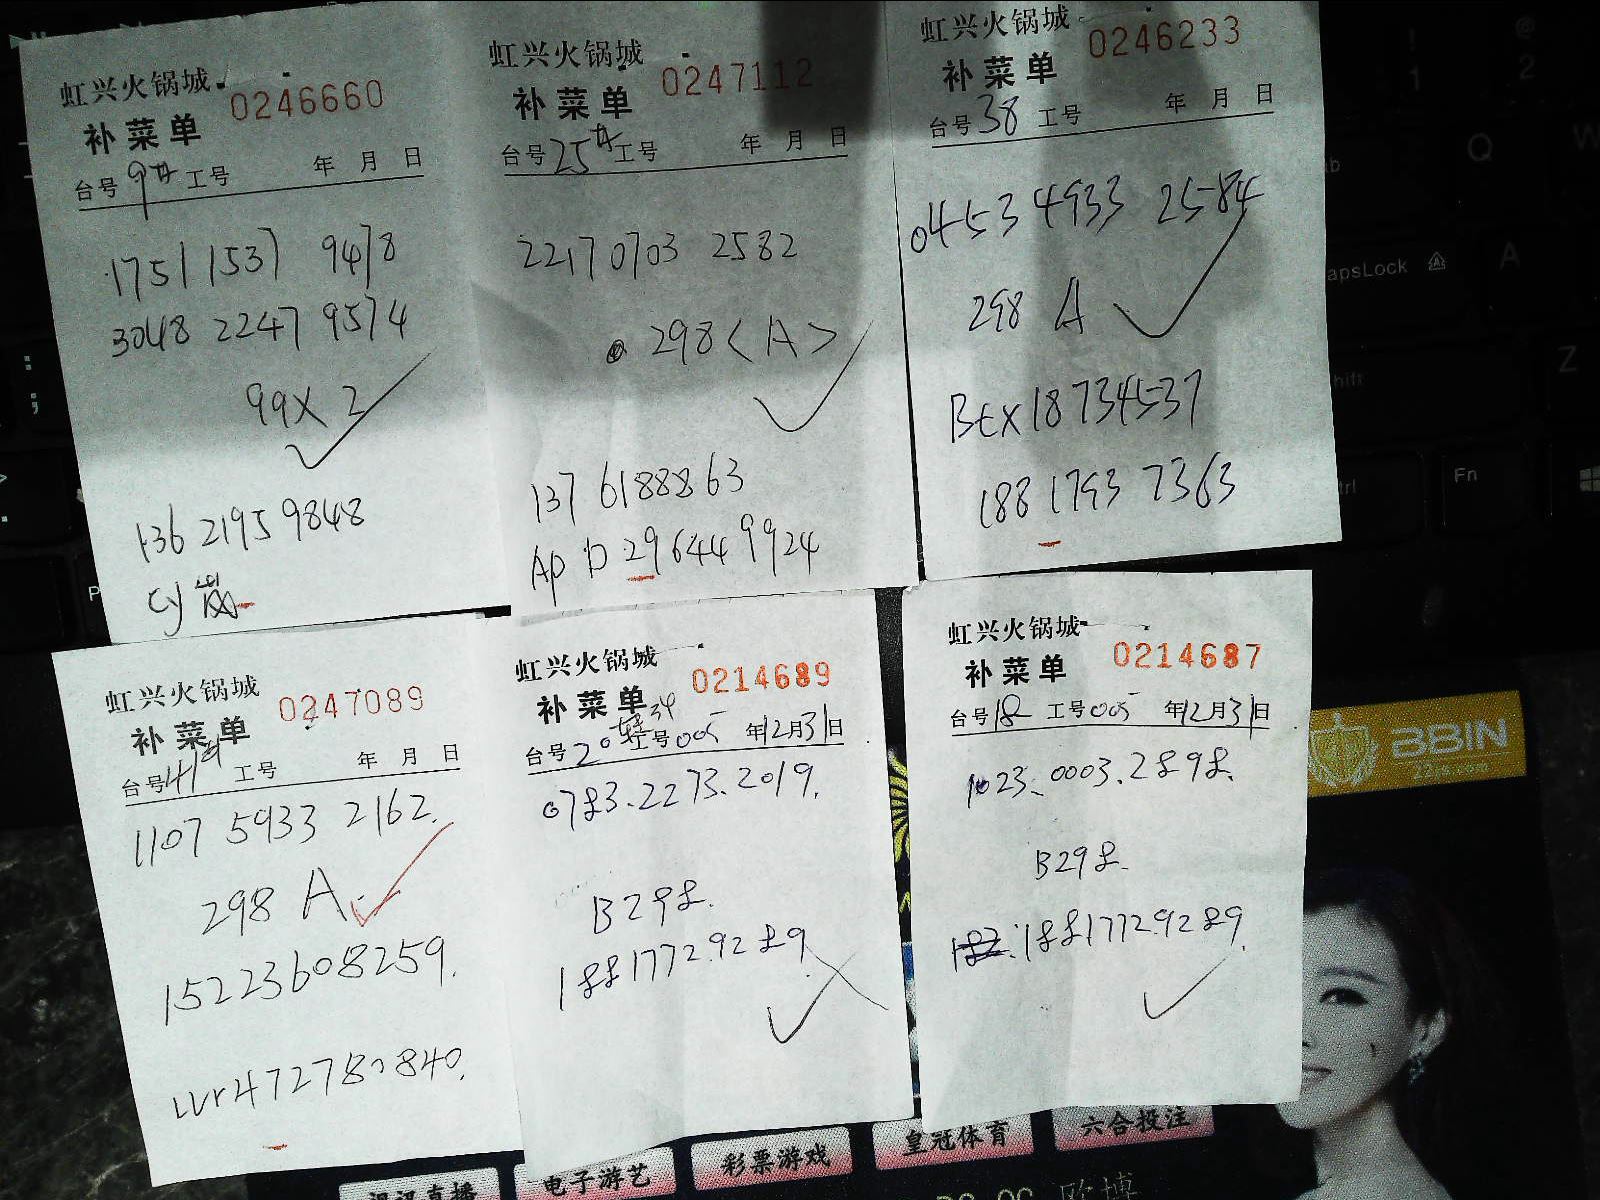 虹兴火锅城
0246660
补菜单
台号9# 工号 年 月 日
1751 1537 9478
3048 2247 9574
99X2
136 2195 9848
Cy
虹兴火锅城
0247112
补菜单
台号25# 工号 年 月 日
2217 0703 2582
298<A>
137 6188863
Ap D 29644 9924
虹兴火锅城
0246233
补菜单
台号38 工号 年 月 日
0453 4933 2584
298 A
Btx18734537
188 1793 7363
虹兴火锅城
0247089
补菜单
台号41# 工号 年 月 日
1107 5933 2162.
298 A
15223608259.
wr472780840.
虹兴火锅城
0214689
补菜单
台号20 号005 年12月31日
0783.2273.2019.
B298.
18817729289
虹兴火锅城
0214687
补菜单
台号18 工号005 年12月31日
1023.0003.2898.
B298.
18817729289.
BBIN
apsLock
A
Q
W
Z
Fn
电子游艺
彩票游戏
皇冠体育
六合投注
欧博